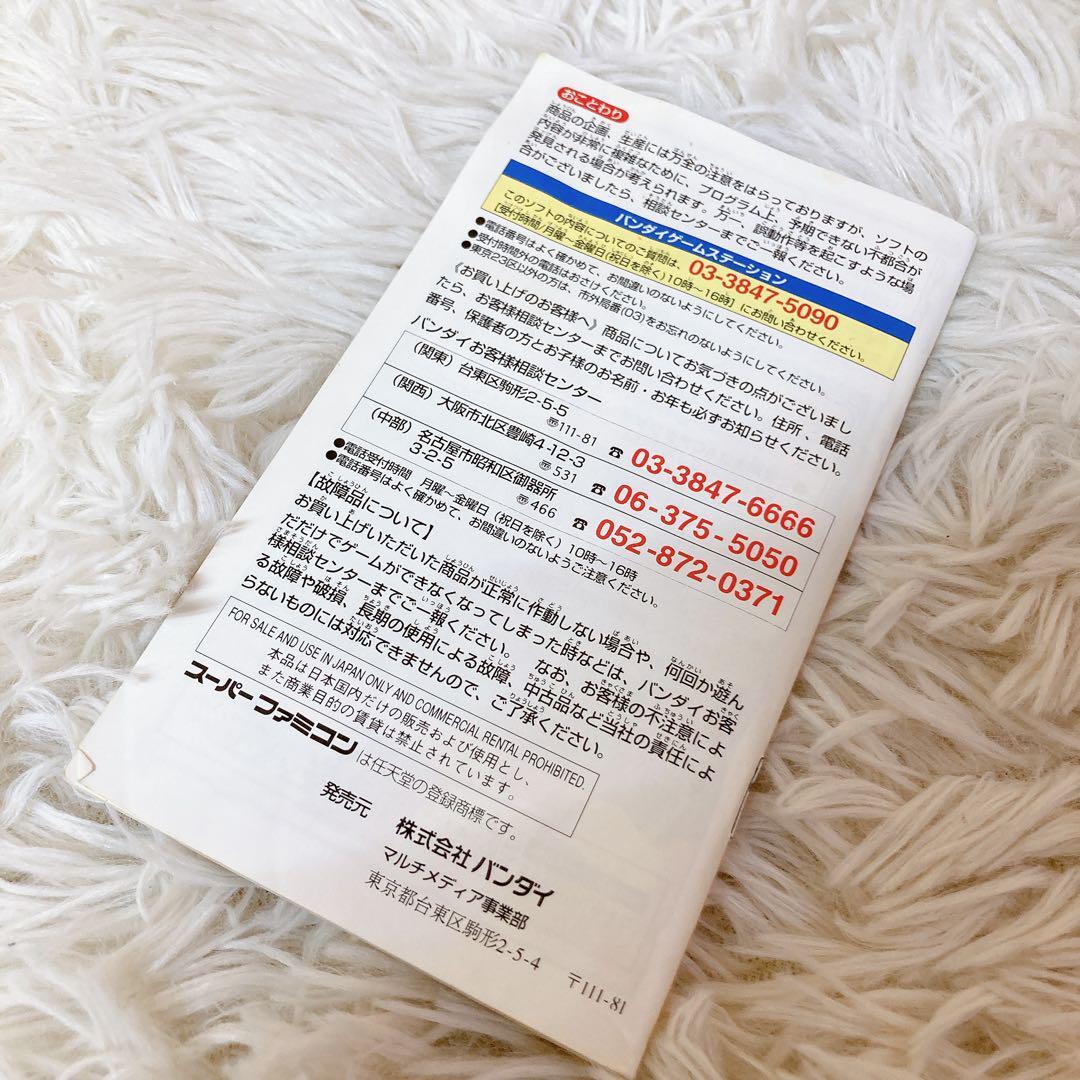 おことわり
商品の企画、生産には万全の注意をはらっておりますが、ソフトの
内容が非常に複雑なために、プログラム上、予期できない不都合が
発見される場合が考えられます。万一、誤動作等を起こすような場
合がございましたら、相談センターまでご一報ください。
バンダイゲームステーション
このソフトの内容についてのご質問は、03-3847-5090
[受付時間/月曜〜金曜日(祝日を除く)10時〜16時]にお問い合わせください。
●電話番号はよく確かめて、お間違いのないようにしてください。
●受付時間外の電話はおさけください。
●東京23区以外の方は、市外局番(03)をお忘れのないようにしてください。
《お買い上げのお客様へ》商品についてお気づきの点がございまし
たら、お客様相談センターまでお問い合わせください。住所、電話
番号、保護者の方とお子様のお名前・お年も必ずお知らせください。
バンダイお客様相談センター
(関東) 台東区駒形2-5-5 〶111-81 ☎ 03-3847-6666
(関西) 大阪市北区豊崎4-12-3 〶531 ☎ 06-375-5050
(中部) 名古屋市昭和区御器所
3-2-5 〶466 ☎ 052-872-0371
●電話受付時間 月曜〜金曜日(祝日を除く)10時〜16時
●電話番号はよく確かめて、お間違いのないようご注意ください。
【故障品について】
お買い上げいただいた商品が正常に作動しない場合や、何回か遊ん
だだけでゲームができなくなってしまった時などは、バンダイお客
様相談センターまでご一報ください。 なお、お客様の不注意によ
る故障や破損、長期の使用による故障、中古品など当社の責任によ
らないものには対応できませんので、ご了承ください。
FOR SALE AND USE IN JAPAN ONLY AND COMMERCIAL RENTAL PROHIBITED.
本品は日本国内だけの販売および使用とし、
また商業目的の賃貸は禁止されています。
スーパーファミコンは任天堂の登録商標です。
発売元 株式会社バンダイ
マルチメディア事業部
東京都台東区駒形2-5-4 〒111-81